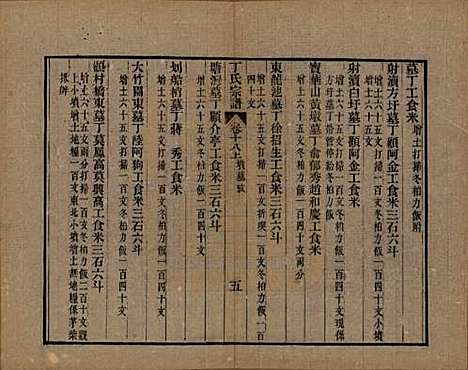 墓丁工食米 增土打掃冬柏力飯附
射瀆方圩墓丁顧阿金工食米三石六斗
增土六十五文打掃一百文冬柏力飯一百四十文
射瀆白圩墓丁顧阿金工食米三石六斗
增土六十五文打掃一百文冬柏力飯一百四十文
寶華山黃墩墓丁俞郁秀趙和慶工食米三石六斗
增土六十五文打掃一百文冬柏力飯一百四十文兩分
東館池墓丁徐招生工食米三石六斗
增土六十五文打掃一百文冬柏力飯一百
四十文
丁氏宗譜
卷十八上
墳墓攷
五
塘灣墓丁顧介亭工食米三石六斗
增土六十五文打掃一百文冬柏力飯一百四十文
划船梢墓丁蔣秀工食米
增土六十五文打掃一百文冬柏力飯一百四十文
大竹園東墓丁陸阿狗工食米三石六斗
增土六十五文打掃一百文冬柏力飯一百四十文
顧村橋東墓丁莫鳳高莫興高工食米三石六斗
增土六十五文打掃一百文冬柏力飯二百十文